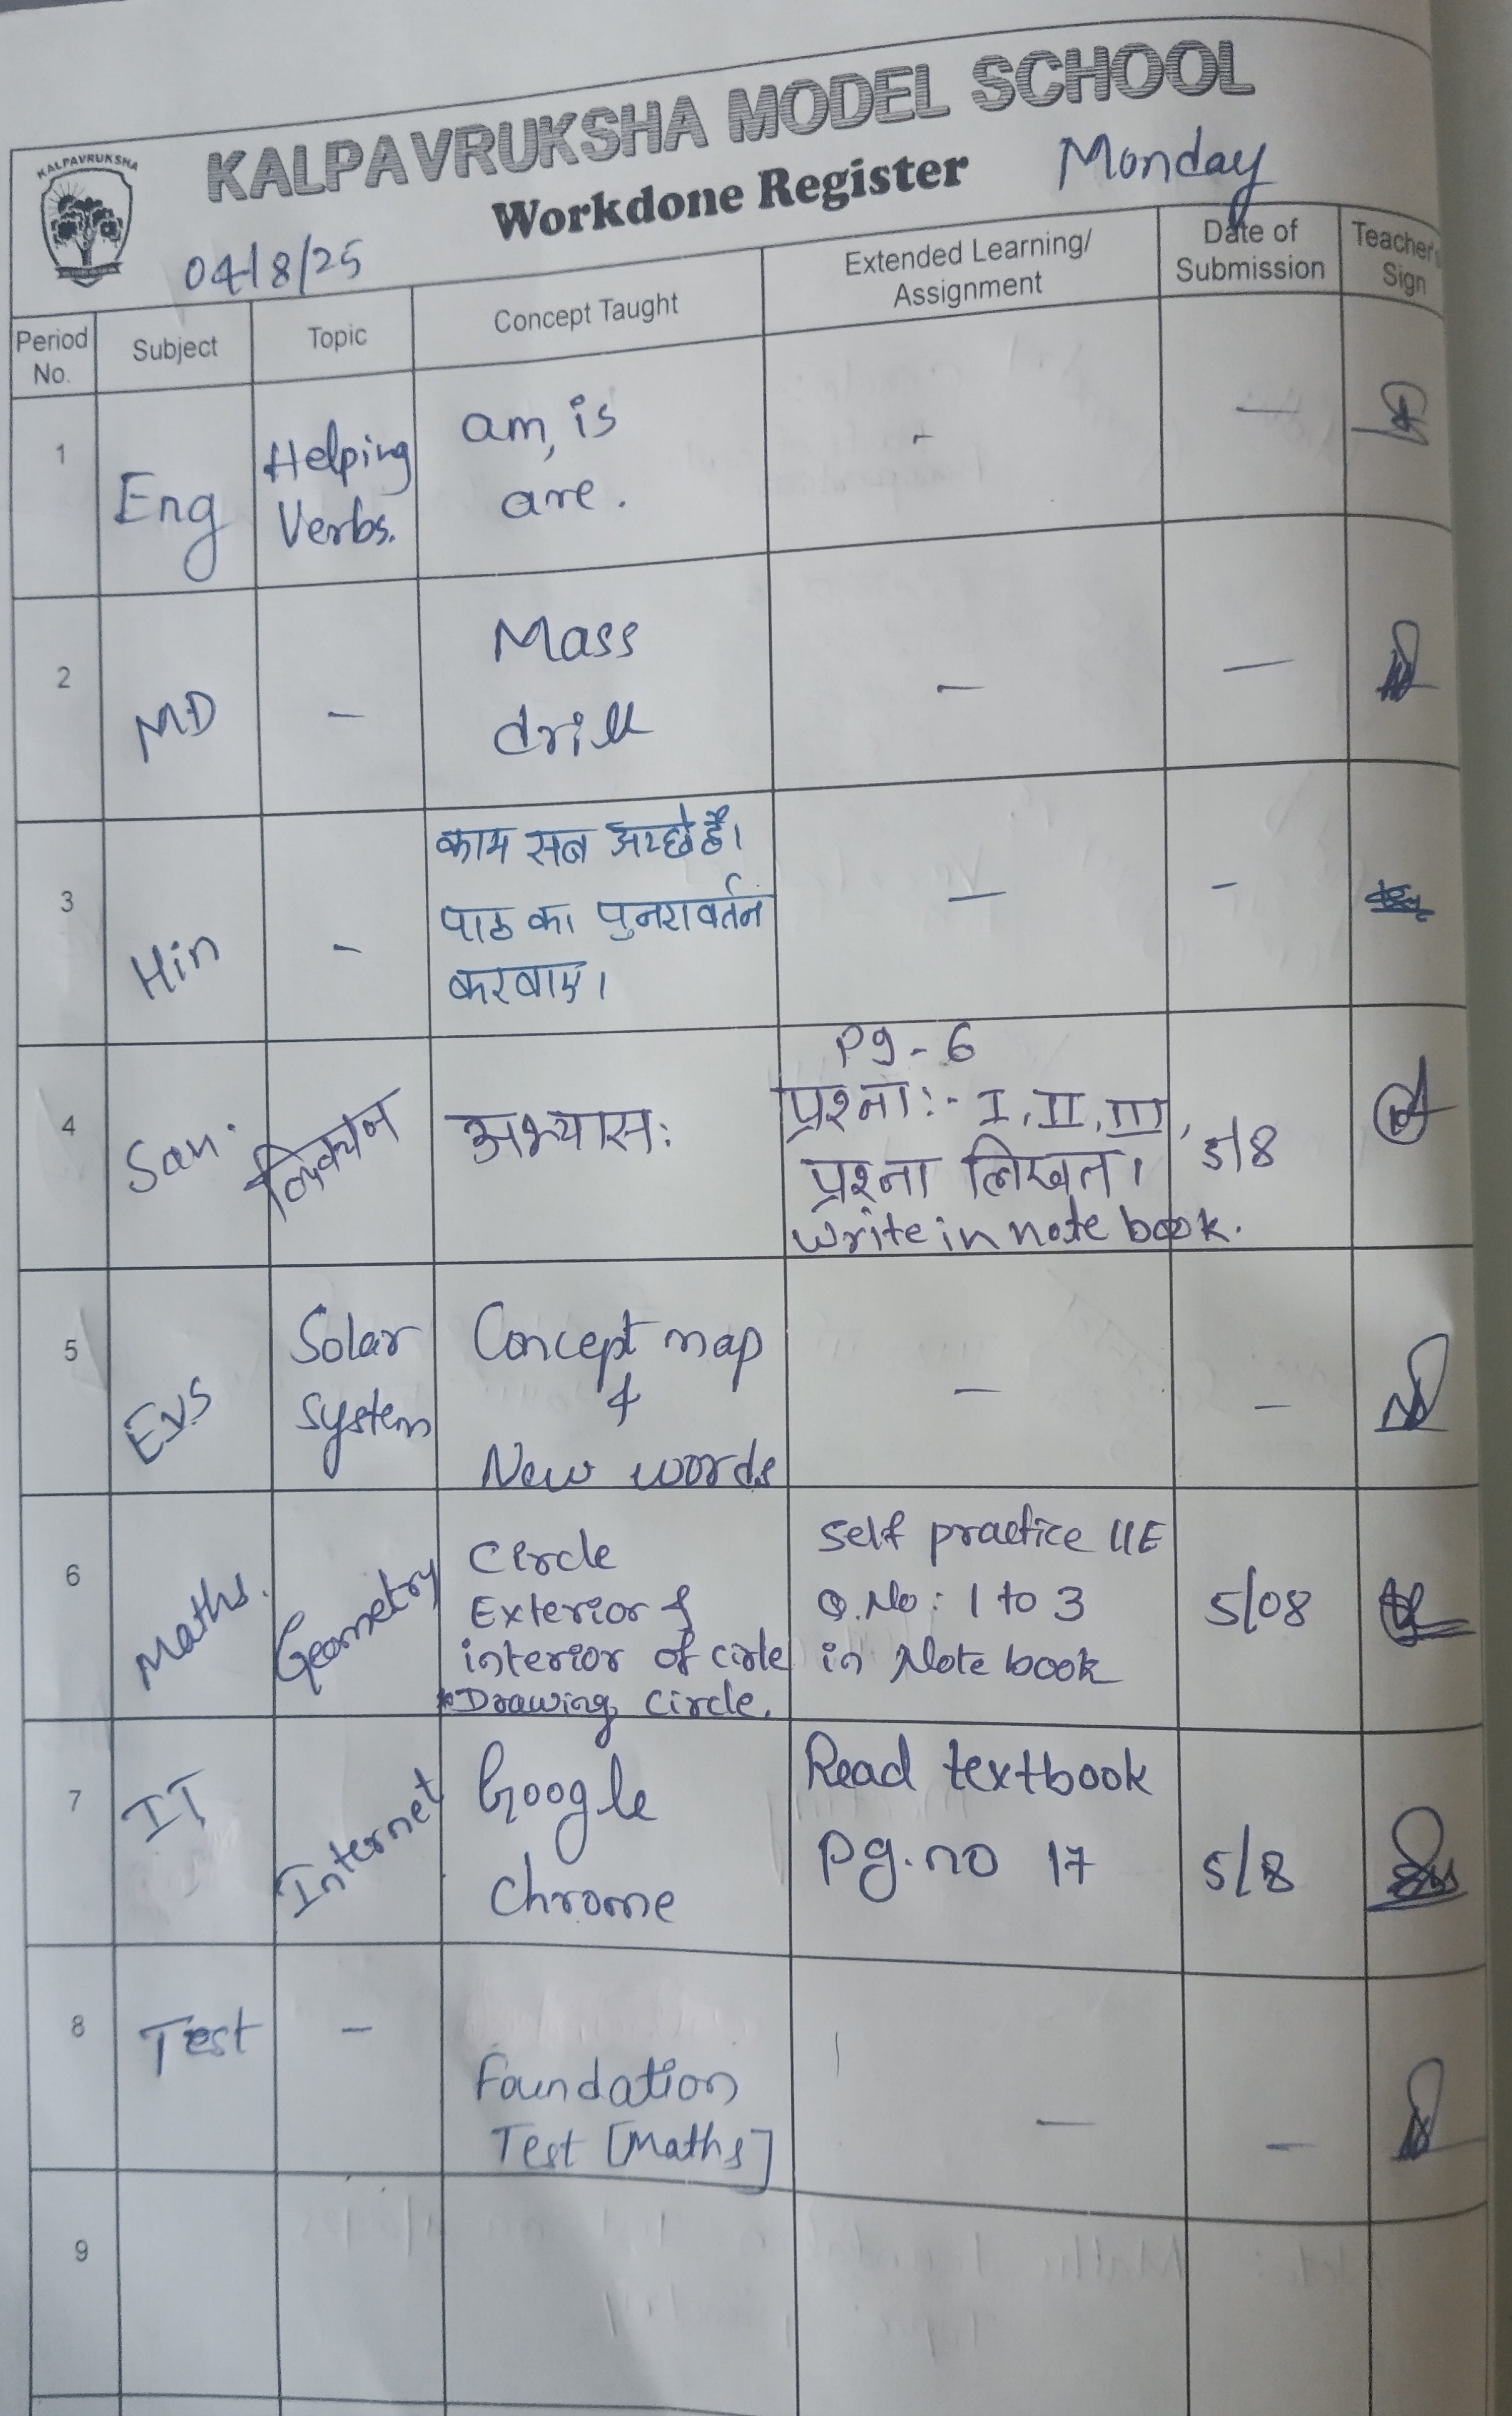 KALPAVRUKSHA
KALPAVRUKSHA MODEL SCHOOL
Workdone Register
Monday
04/8/25
Period No.
Subject
Topic
Concept Taught
Extended Learning/
Assignment
Date of
Submission
Teacher's
Sign
1
Eng
Helping
Verbs.
am, is
are.
-
—
2
MD
-
Mass
drill
—
—
3
Hin
-
काम सब अच्छे है।
पाठ का पुनरावर्तन
करवाए।
—
-
4
San.
अभ्यासः
Pg - 6
प्रश्ना:- I, II, III,
प्रश्ना लिखत।
write in note book.
5/8
5
EVS
Solar
System
Concept map
&
New words
—
-
6
Maths.
Geometry
Circle
Exterior &
interior of cirle
*Drawing circle.
Self practice 11E
Q.No: 1 to 3
in Note book
5/08
7
IT
Internet
Google
Chrome
Read textbook
Pg.no 17
5/8
8
Test
-
Foundation
Test [Maths]
—
-
9